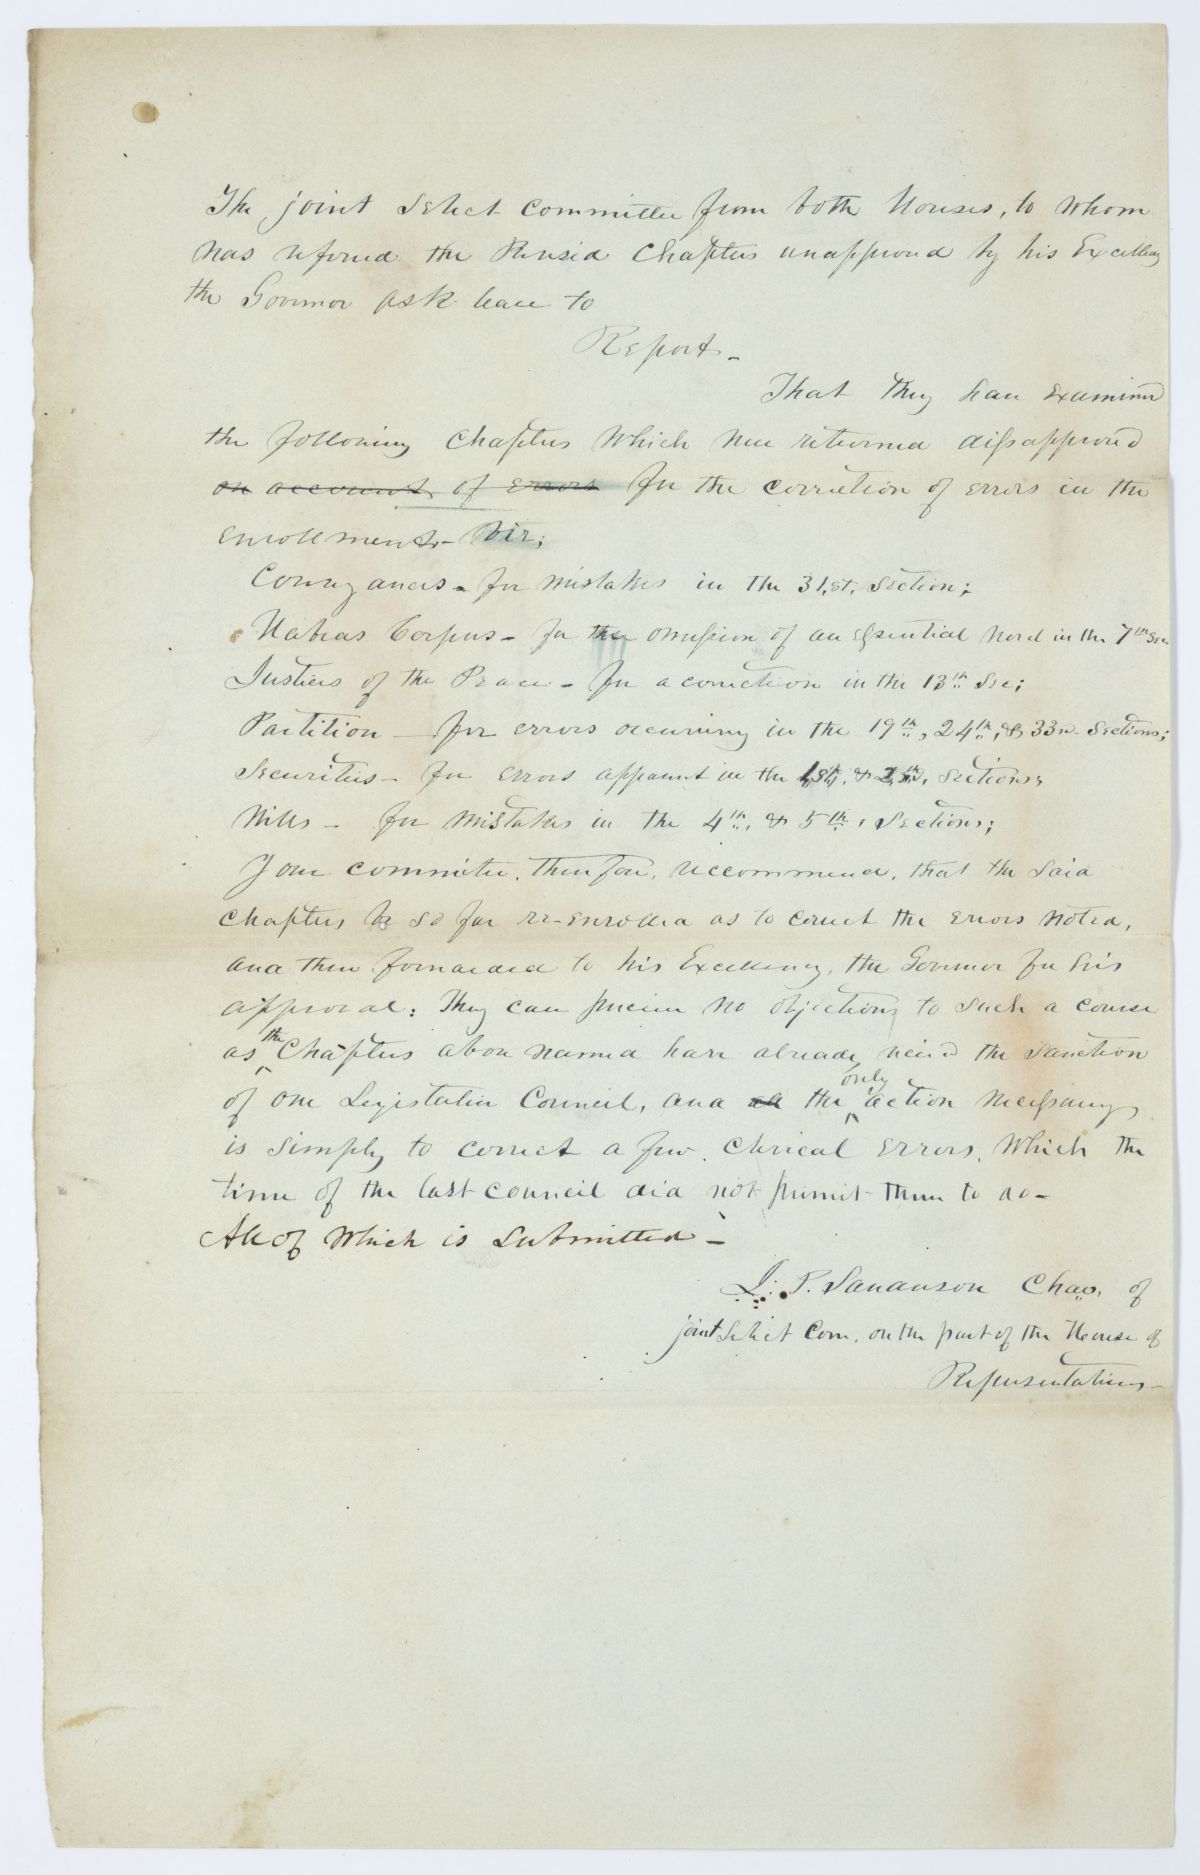 The joint select committee from both Houses, to whom
was refered the Revised Chapters unapproved by his Excellency
the Governor ask leave to
Report-
That they have examined
the following Chapters which were returned disapproved
on account of errors for the correction of errors in the
enrollment- Viz;
Conveyances- for mistakes in the 31,st, Section;
Habeas Corpus- for the omission of an essential word in the 7th Sec.
Justices of the Peace- for a correction in the 13th Sec;
Partition- for errors occurring in the 19th, 24th, & 33rd Sections;
Securities- for errors apparent in the & Sections;
Wills- for mistakes in the 4th, & 5th, Sections;
Your committee, therefore, reccommend, that the said
chapters be so far re-enrolled as to correct the errors noted,
and then forwarded to his Excellency, the Governor for his
approval: They can perceive no objections to such a course
as the Chapters above named have already recie'd the sanction
of one Legislative Council, and the only action necessary
is simply to correct a few clerical errors, which the
time of the last council did not permit them to do-
All of which is submitted-
P. Chair. of
joint Select Com. on the part of the House of
Representatives-